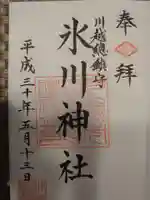 奉拝
川越總鎮守
氷川神社
平成三十年五月十三日